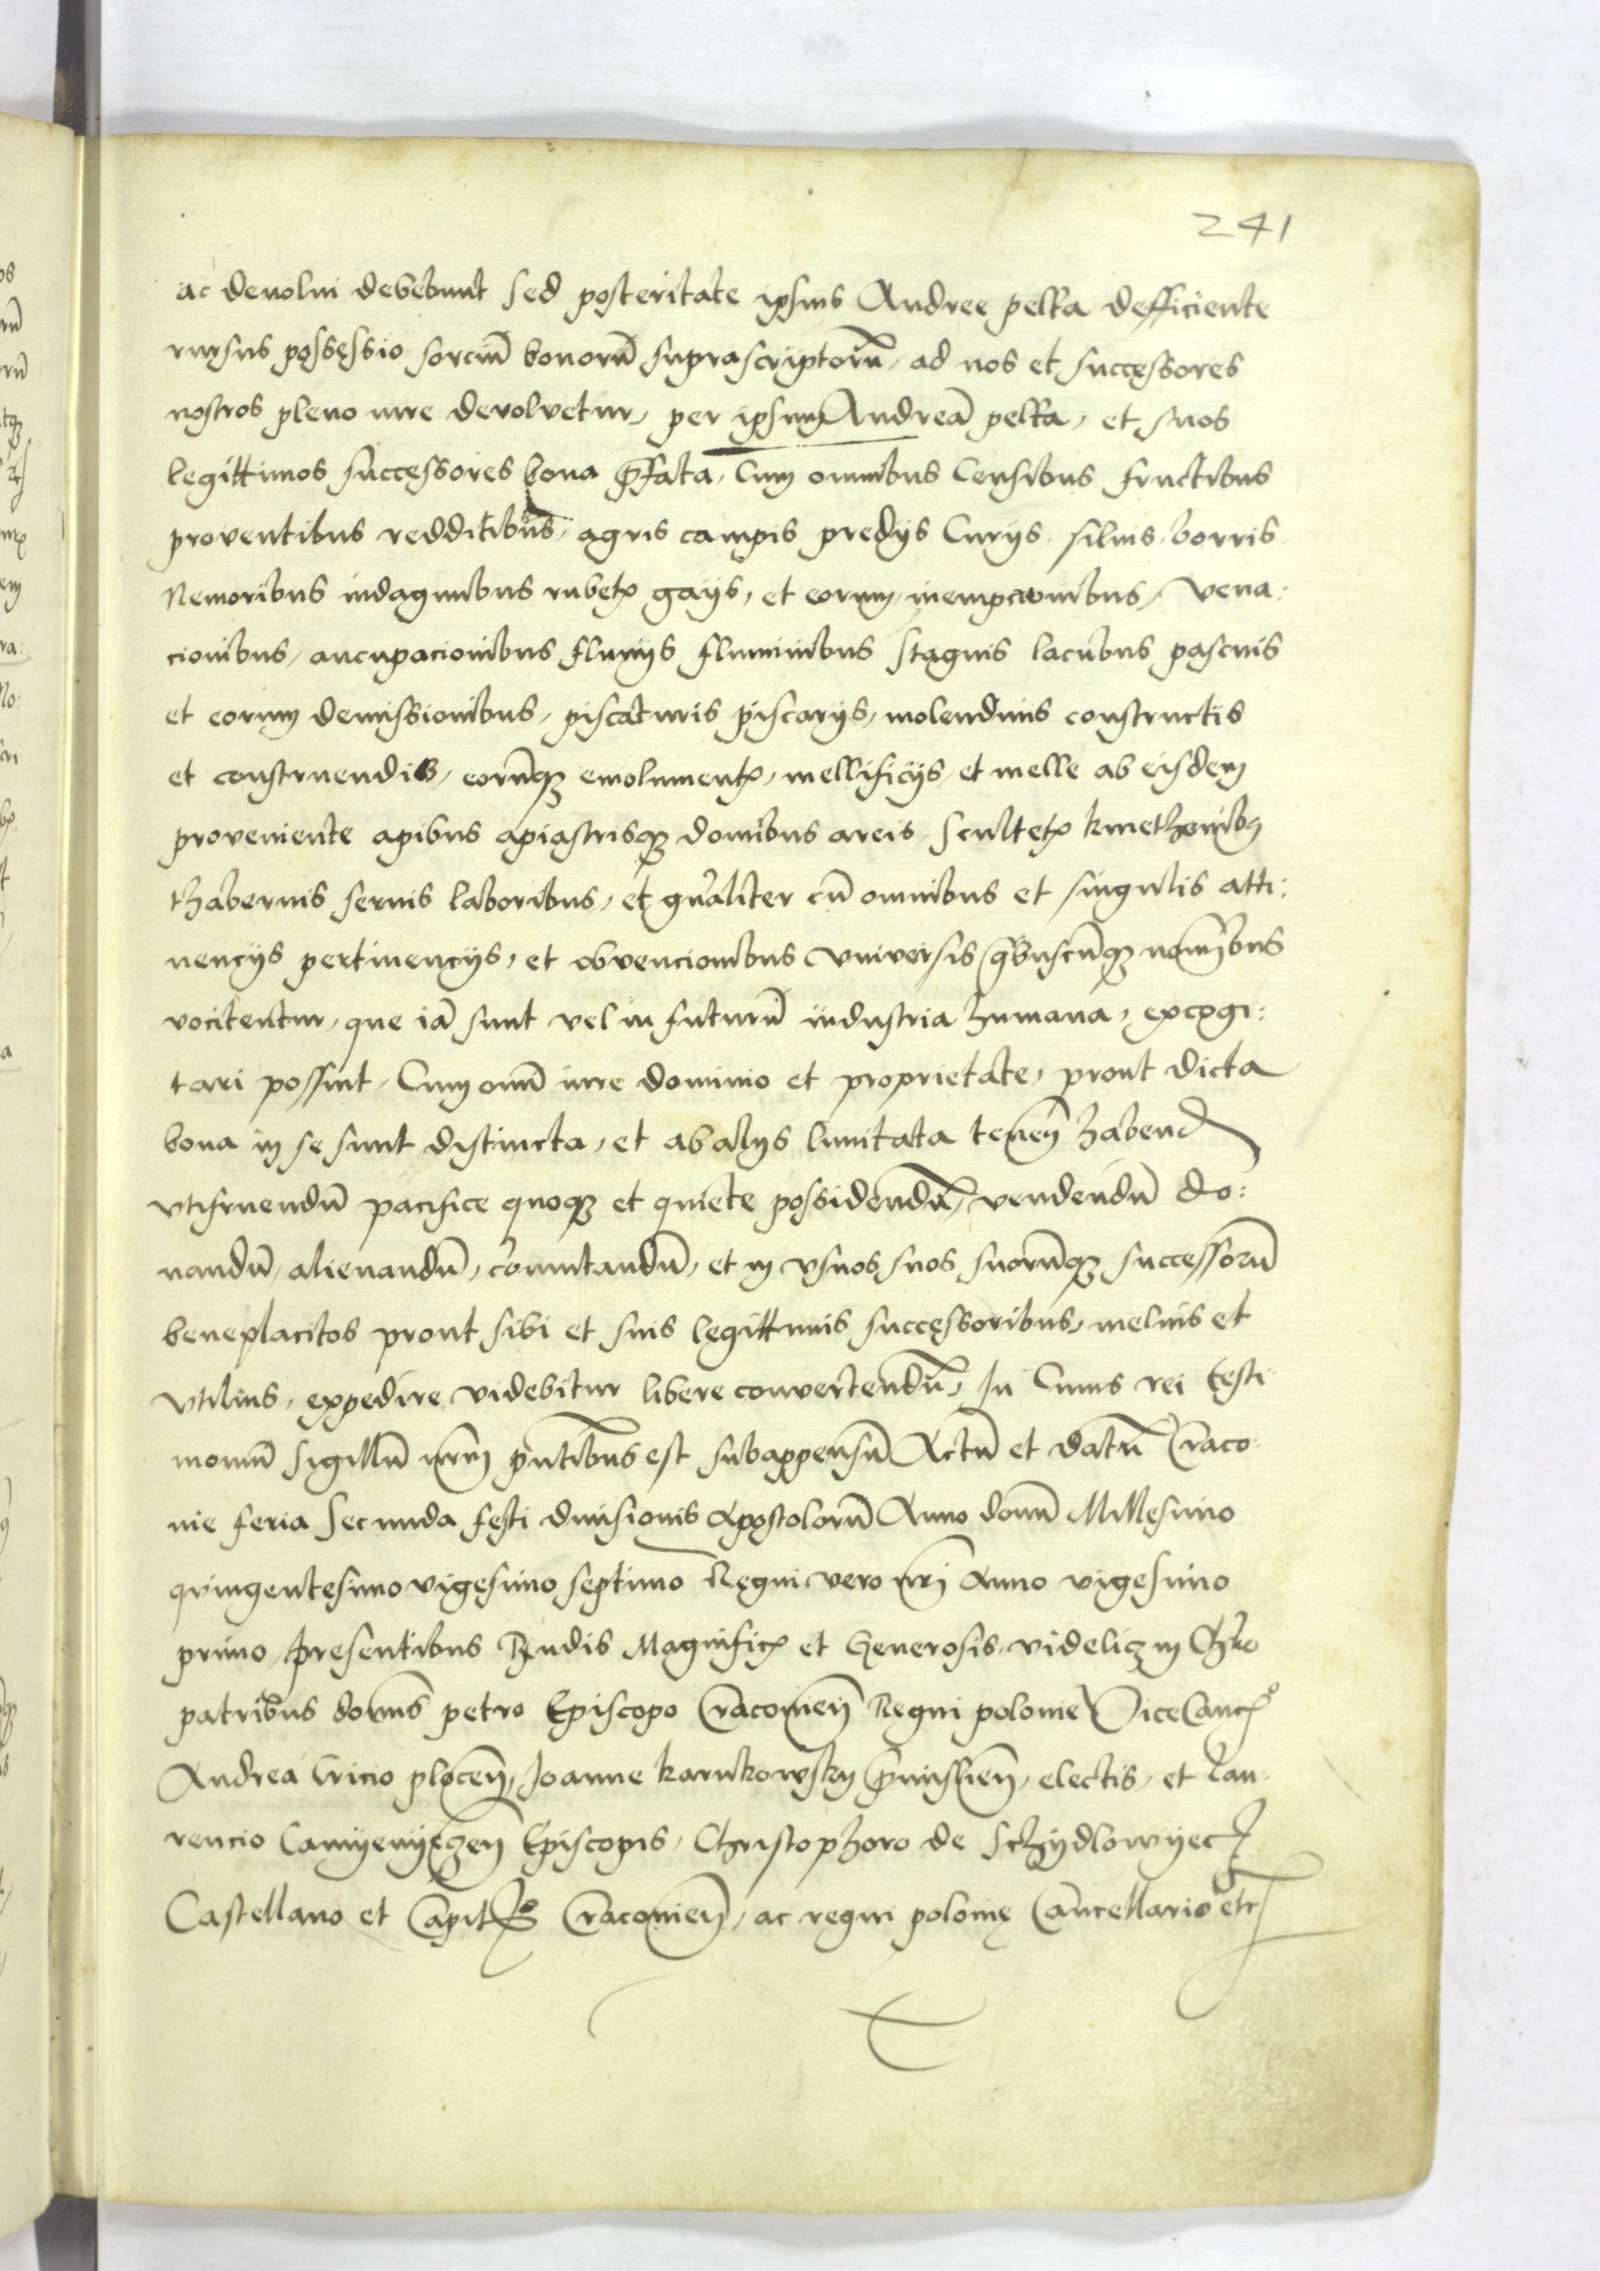 241
ac deuolui debebunt Sed posteritate ipsius Andree pelka defficiente
rursus possessio sorciũ bonorũ suprascriptorũ, ad nos et successores
nostros pleno iure devolvetur, per ipsum Andreã pelka, et suos
legittimos successores bona p̃fata, Cum omnibus Censibus fructibus
proventibus redditibus, agris campis predijs Curijs siluis borris
Nemoribus indaginibus rubetꝭ gaijs, et eorum, vena:
cionibus, aucupacionibus fluuijs fluminibus stagnis lacubus pascuis
et eorum demissionibus, piscaturis piscarijs, molendinis constructis
et construendis, eorũqꝫ emolumentꝭ, mellificijs et melle ab eisdem
proveniente apibus apiastrisqꝫ domibus areis, Scultetꝭ kmethonibꝫ
thabernis seruis laboribus, et gñaliter cũ omnibus et singulis atti:
nencijs pertinencijs, et obvencionibus Vniversis q̃buscũqꝫ nom̃ibus
vocitentur, que iã sunt vel in futurũ industria humana, excogi:
tari possint, Cum omñ iure dominio et proprietate, prout dicta
bona in se sunt distincta, et ab alijs limitata teneñ habend
vtifruendũ pacifice quoqꝫ et quiete possidendũ, vendendũ do:
nandũ, alienandũ, cõmutandũ, et in vsuos suos suorũqꝫ successorũ
beneplacitos prout sibi et suis legittimis successoribus, melius et
vtilius, expedire videbitur libere convertendũ, In Cuius rei testi
moniũ Sigillũ nr̃m p̃ntibus est subappensũ Actũ et datũ Craco
uie feria Secunda festi diuisionis Apostolorũ Anno domĩ Millesimo
quingentesimo vigesimo septimo Regni vero nr̃i Anno vigesimo
primo, presentibus Rndis Magnificꝭ et Generosis, videlicꝫ in Chr̃o
patribus domĩs petro Episcopo Cracouieñ Regni polonie ViceCancꝭº
Andrea Cricio ploceñ, Joanne karnkowsky p̃missieñ, electis, et Lau
rencio Camyenyeczeñ Episcopis, Christophoro de Schydlowyecz
Castellano et Capitꝭº Cracouieñ, ac regni polonię Cancellario etc